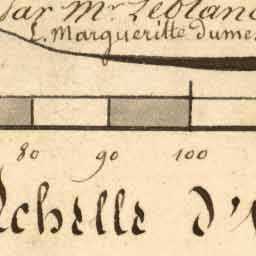 Par Mr. Leblanc
L. Margueritte Dume
80 90 100
Echelle d'